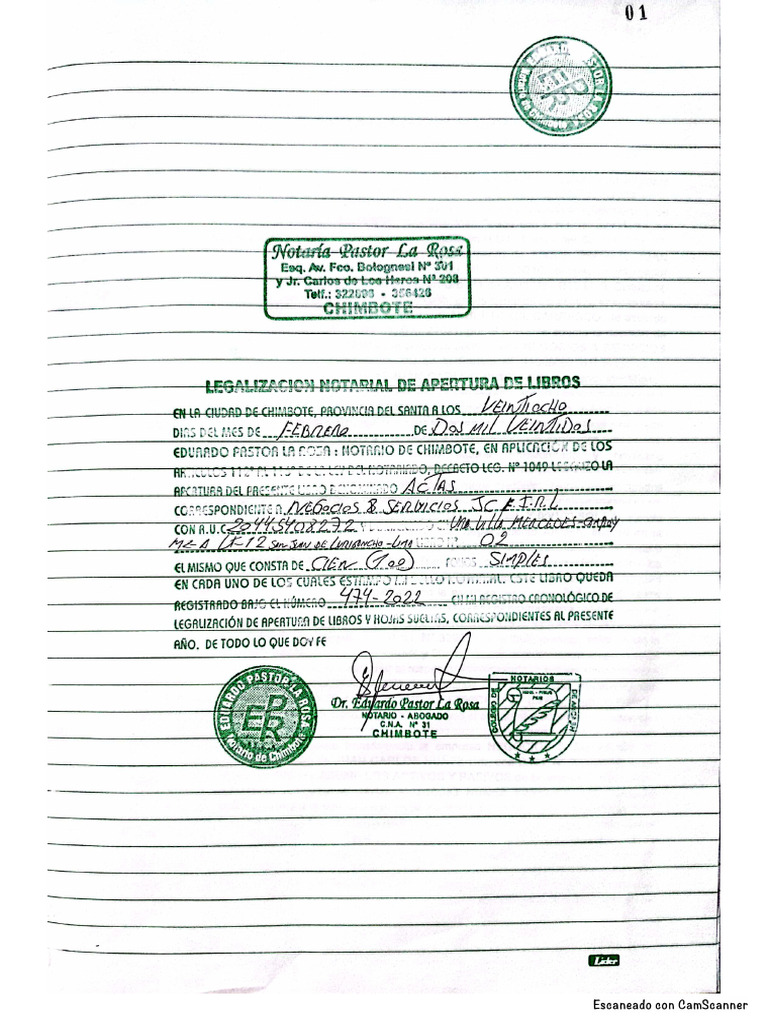 01
Notaría Pastor La Rosa
Esq. Av. Fco. Bolognesi Nº 301
y Jr. Carlos de Los Heros Nº 208
Telf.: 322098 - 356426
CHIMBOTE
LEGALIZACION NOTARIAL DE APERTURA DE LIBROS
EN LA CIUDAD DE CHIMBOTE, PROVINCIA DEL SANTA A LOS VEINTIOCHO
DIAS DEL MES DE FEBRERO DE DOS MIL VEINTIDOS
EDUARDO PASTOR LA ROSA: NOTARIO DE CHIMBOTE, EN APLICACIÓN DE LOS
ARTICULOS 112º AL 116º DE LA LEY DEL NOTARIADO, DECRETO LEG. Nº 1049 LEGALIZO LA
APERTURA DEL PRESENTE LIBRO DENOMINADO ACTAS
CORRESPONDIENTE A NEGOCIOS & SERVICIOS JC E.I.R.L
CON R.U.C. 20445408272 VILLA MERCEDES
MZ A LT-12 SAN JUAN DE LURIGANCHO-LIMA 02
EL MISMO QUE CONSTA DE CIEN (100) FOLIOS SIMPLES
EN CADA UNO DE LOS CUALES ESTAMPO MI SELLO NOTARIAL. ESTE LIBRO QUEDA
REGISTRADO BAJO EL NÚMERO 474-2022 EN MI REGISTRO CRONOLÓGICO DE
LEGALIZACIÓN DE APERTURA DE LIBROS Y HOJAS SUELTAS, CORRESPONDIENTES AL PRESENTE
AÑO. DE TODO LO QUE DOY FE
EDUARDO PASTOR LA ROSA
EPR
Notario de Chimbote
Dr. Eduardo Pastor La Rosa
NOTARIO - ABOGADO
C.N.A. Nº 31
CHIMBOTE
NOTARIOS
Lider
Escaneado con CamScanner